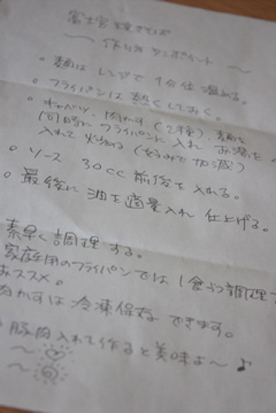 富士宮焼きそば
～ 作り方 ワンポイント ～
○ 麺は レンジで 1分位 温める。
○ フライパンは 熱くしておく。
○ キャベツ、肉かす(2種)、麺を
同時に フライパンに 入れ お湯を
入れて 炒める (好みで 加減)
○ ソース 30cc 前後を 入れる。
○ 最後に 油を適量入れ 仕上げる。
素早く調理する。
家庭用のフライパンでは 1食ずつ調理
おススメ。
肉かすは 冷凍保存 できます。
豚肉入れて作ると美味よ～♪